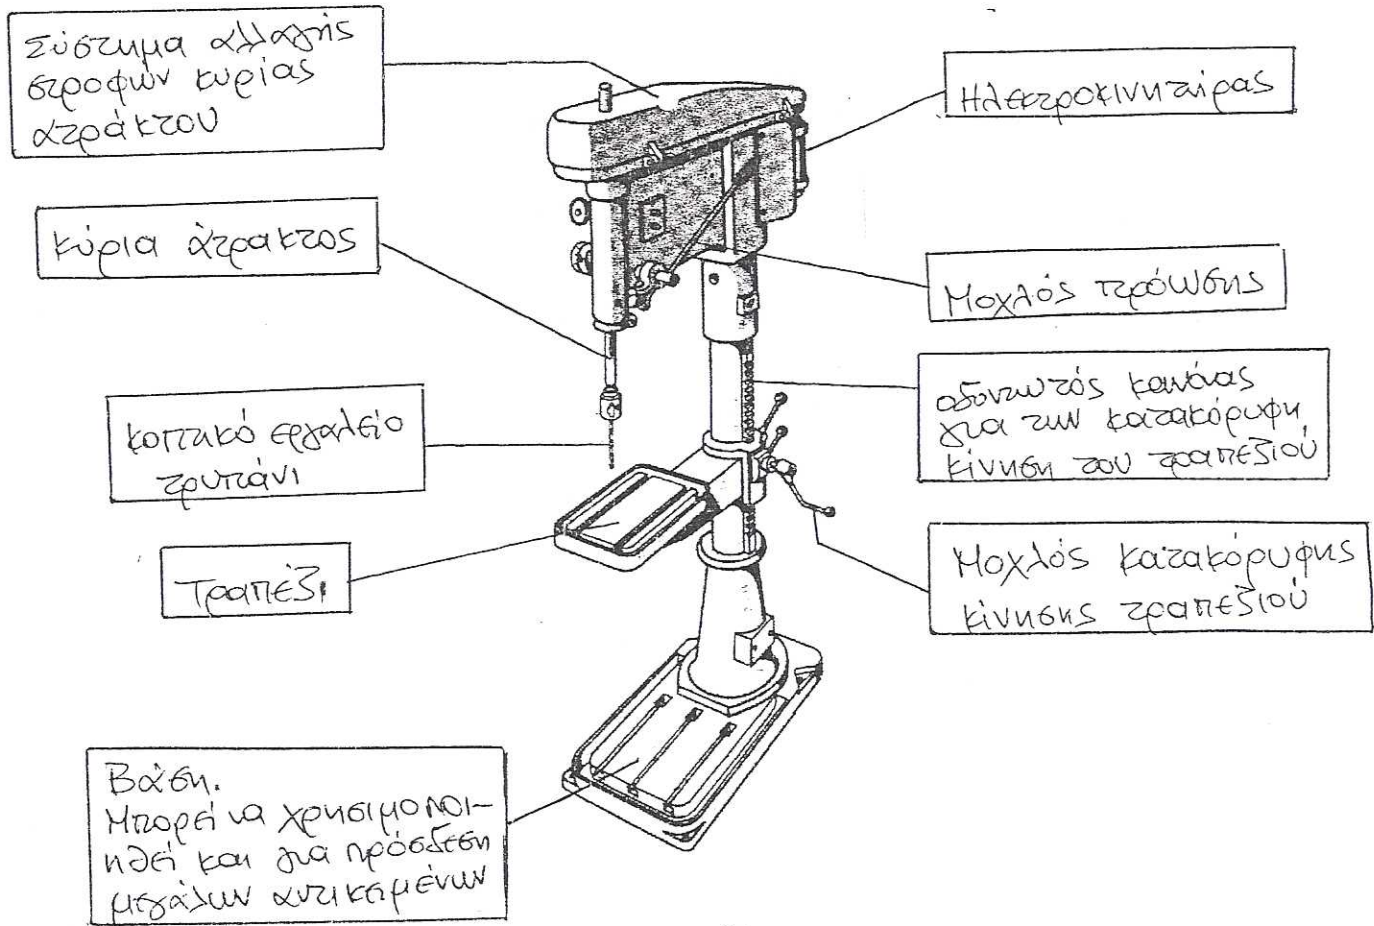 Σύστημα αλλαγής
στροφών κυρίας
ατράκτου
Ηλεκτροκινητήρας
κύρια άτρακτος
Μοχλός πρόωσης
οδοντωτός κανόνας
για την κατακόρυφη
κίνηση του τραπεζιού
κοπτικό εργαλείο
τρυπάνι
Τραπέζι
Μοχλός κατακόρυφης
κίνησης τραπεζιού
Βάση.
Μπορεί να χρησιμοποι-
ηθεί και για πρόσδεση
μεγάλων αντικειμένων